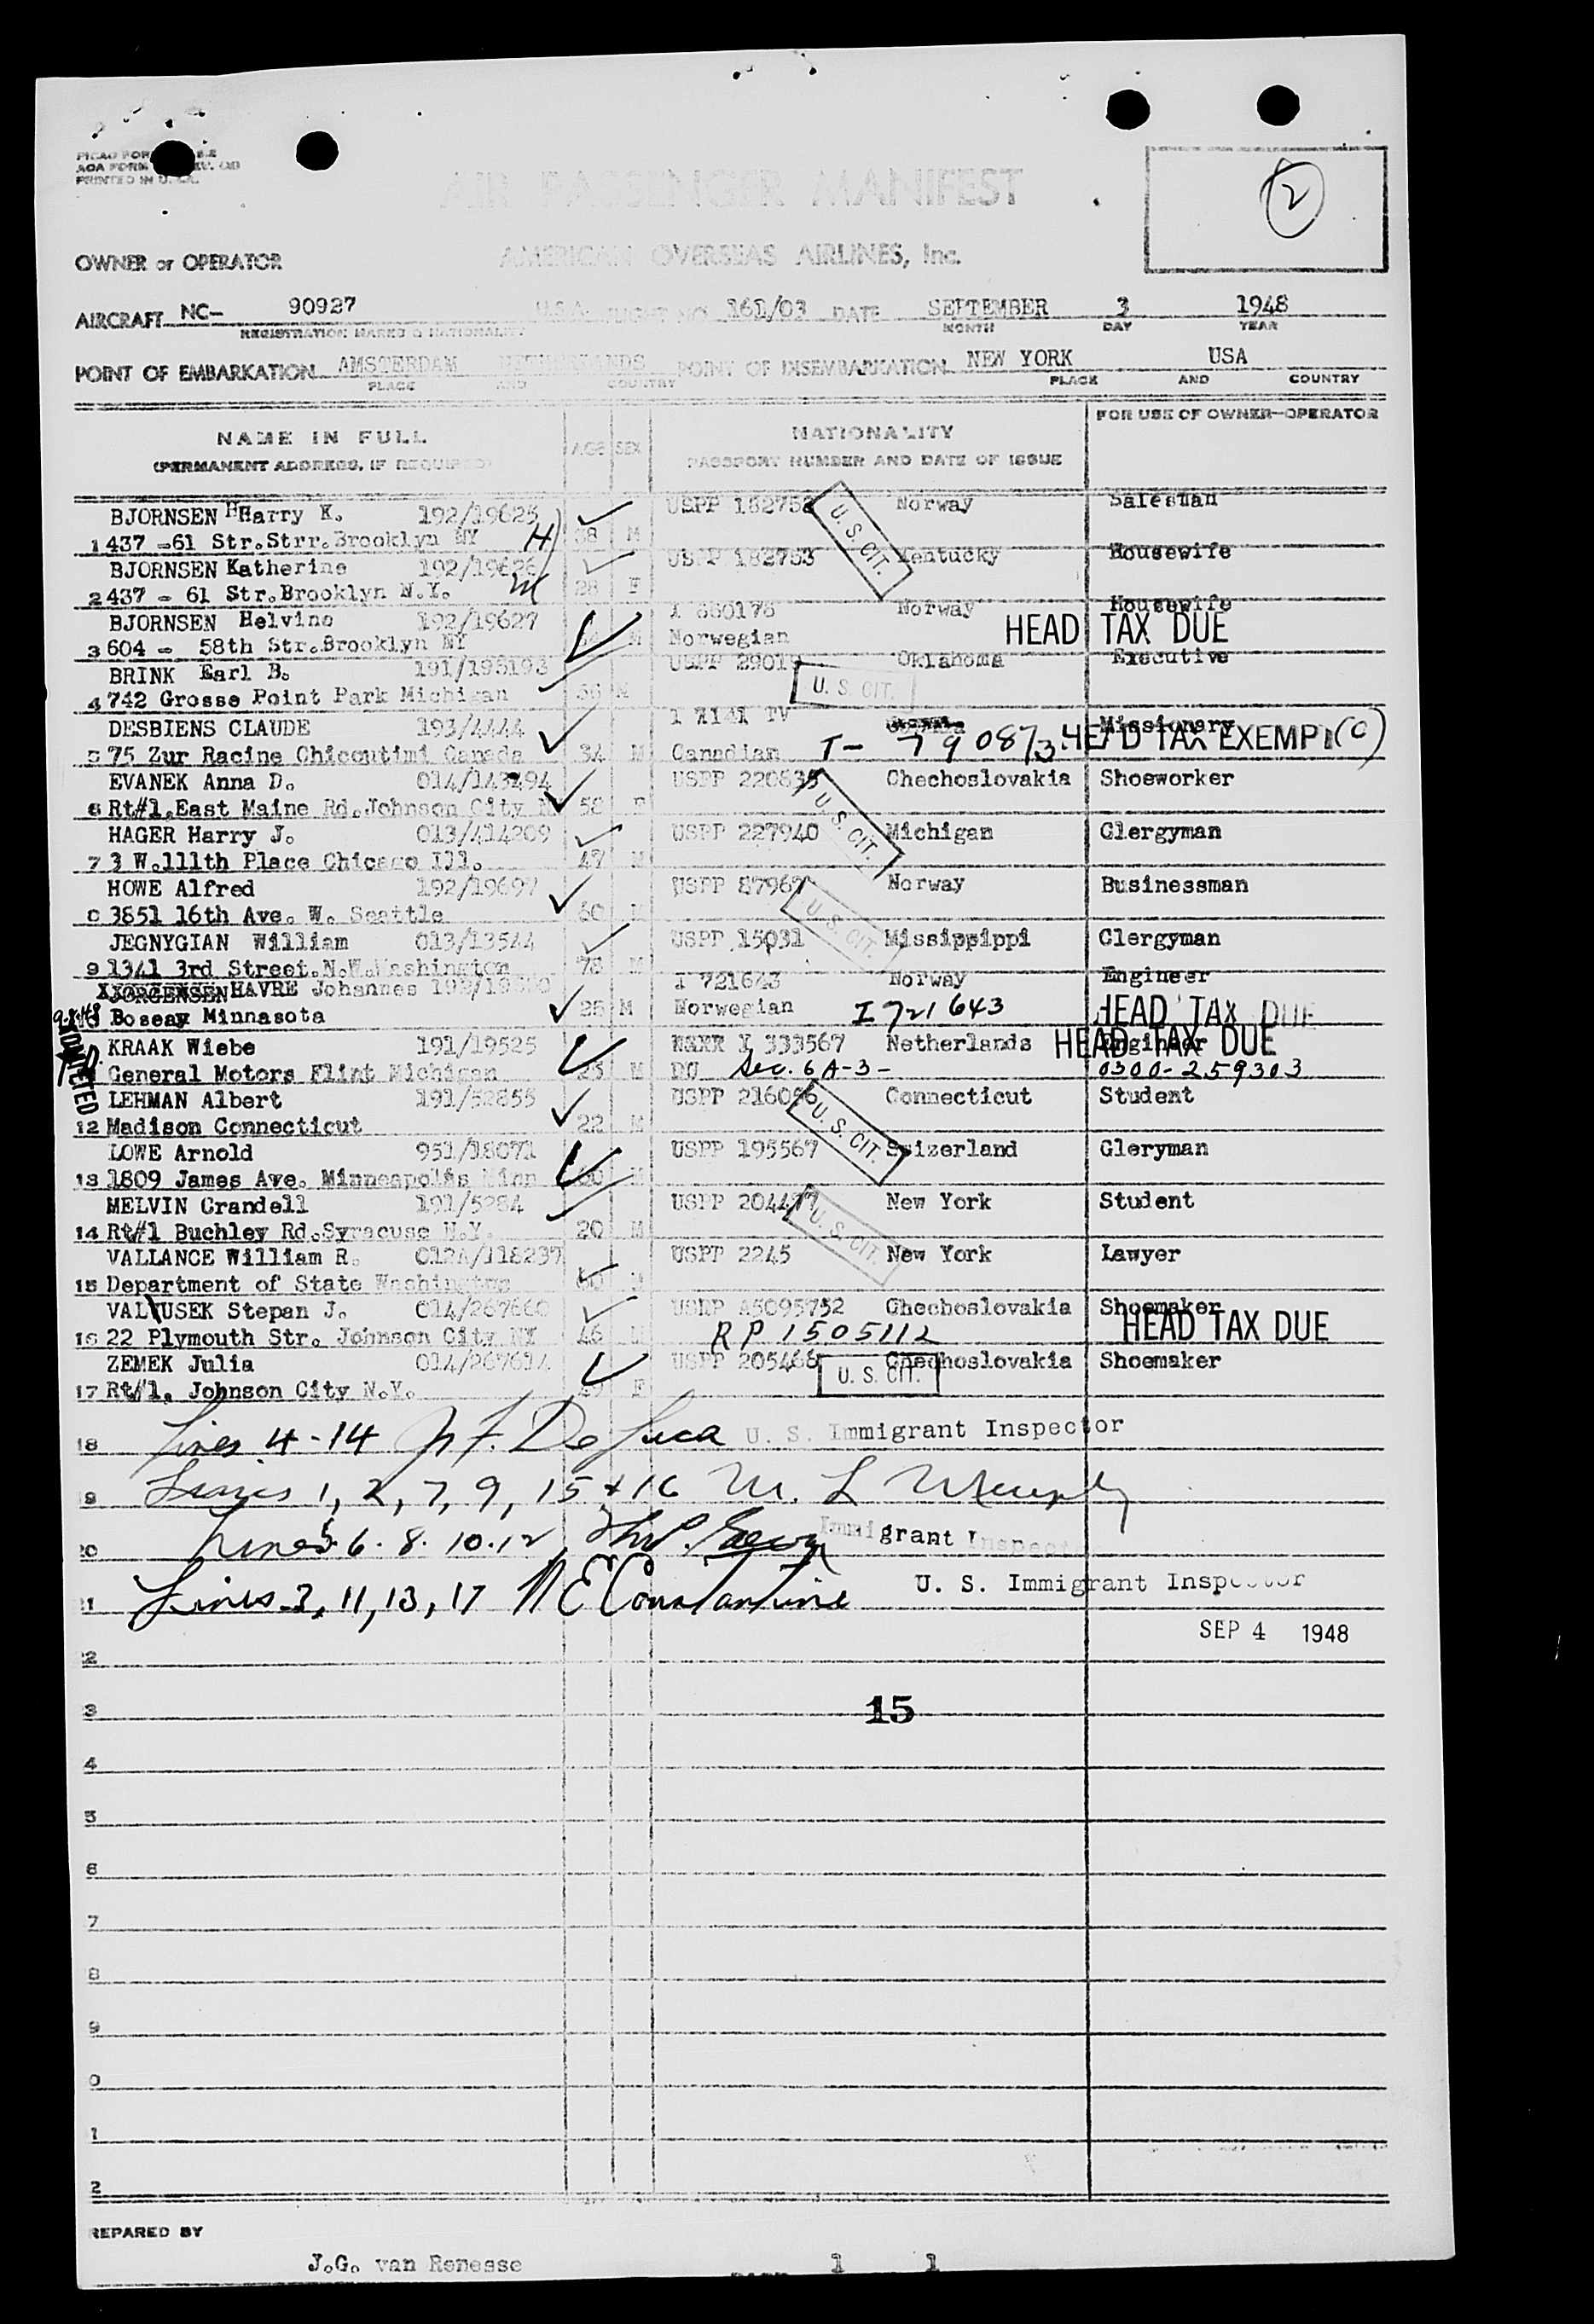 PRINTED IN U.S.A.
AIR PASSENGER MANIFEST
2
OWNER or OPERATOR AMERICAN OVERSEAS AIRLINES, Inc.
AIRCRAFT NC- 90927 U.S.A. FLIGHT NO 161/03 DATE SEPTEMBER 3 1948
REGISTRATION MARKS & NATIONALITY MONTH DAY YEAR
POINT OF EMBARKATION AMSTERDAM NETHERLANDS POINT OF DISEMBARKATION NEW YORK USA
PLACE AND COUNTRY PLACE AND COUNTRY
FOR USE OF OWNER-OPERATOR
NAME IN FULL AGE SEX NATIONALITY
(PERMANENT ADDRESS, IF REQUIRED) PASSPORT NUMBER AND DATE OF ISSUE
BJORNSEN HHarry K. 192/19625 USPP 182752 Norway Salesman
1 437 -61 Str.Strr.Brooklyn NY H 38 M U. S. CIT.
BJORNSEN Katherine 192/19626 USPP 182753 Kentucky Housewife
2 437 - 61 Str.Brooklyn N.Y. W 28 F
BJORNSEN Helvine 192/19627 I 660176 Norway Housewife
3 604 - 58th Str.Brooklyn NY Norwegian HEAD TAX DUE
BRINK Earl B. 191/195193 USPP 29019 Oklahoma Executive
4 742 Grosse Point Park Michigan 56 M U. S. CIT.
DESBIENS CLAUDE 193/4444 Missionary
5 75 Zur Racine Chicoutimi Canada 34 M Canadian T- 790873 HEAD TAX EXEMPT (C)
EVANEK Anna D. 014/143494 USPP 220835 Chechoslovakia Shoeworker
6 Rt#1,East Maine Rd.Johnson City N 58 F U. S. CIT.
HAGER Harry J. 013/414209 USPP 227940 Michigan Clergyman
7 3 W.111th Place Chicago Ill. 47 M
HOWE Alfred 192/19697 USPP 87967 Norway Businessman
8 3851 16th Ave. W. Seattle 60 M U. S. CIT.
JEGNYGIAN William 013/13544 USPP 15031 Mississippippi Clergyman
9 1341 3rd Street.N.W.Washington 78 M
JORGENSEN HAVRE Johannes I 721643 Norway Engineer
Boseay Minnasota 25 M Norwegian I 721643 HEAD TAX DUE
KRAAK Wiebe 191/19525 I 333567 Netherlands Engineer HEAD TAX DUE
ADMITTED General Motors Flint Michigan 25 M DU Sec. 6A-3- 0300-259303
LEHMAN Albert 191/52855 USPP 216056 Connecticut Student
12 Madison Connecticut 22 M U. S. CIT.
LOWE Arnold 951/18071 USPP 195567 Swizerland Gleryman
13 1809 James Ave. Minneapolis Minn 60 M
MELVIN Crandell 191/5284 USPP 204477 New York Student
14 Rt#1 Buchley Rd.Syracuse N.Y. 20 M U. S. CIT.
VALLANCE William R. 012A/118237 USPP 2245 New York Lawyer
15 Department of State Washington 60 M
VALUSEK Stepan J. 014/267660 USPP A5095752 Chechoslovakia Shoemaker
16 22 Plymouth Str. Johnson City NY 46 M RP 1505112 HEAD TAX DUE
ZEMEK Julia 014/267614 USPP 205468 Chechoslovakia Shoemaker
17 Rt#1, Johnson City N.Y. 49 F U. S. CIT.
18 Lines 4-14 De Luca U. S. Immigrant Inspector
9 Lines 1, 2, 7, 9, 15 + 16 M. L. Murphy
20 Lines 5. 6. 8. 10. 12 Immigrant Inspector
1 Lines 3, 11, 13, 17 N E Constantine U. S. Immigrant Inspector
SEP 4 1948
2
3 15
4
5
6
7
8
9
0
1
2
REPARED BY
J.G. van Renesse 1 1